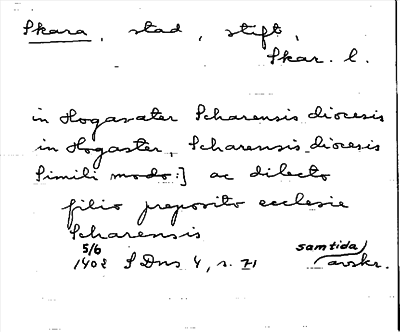 Skara, stad, stift,
Skar. l.
in Hogasater Scharensis diocesis
in Hogaster, Scharensis diocesis
Simili modo:] ac dilecto
filio preposito ecclesie
Scharensis
5/6
1402 SDns 4, s. 71
samtida
avskr.